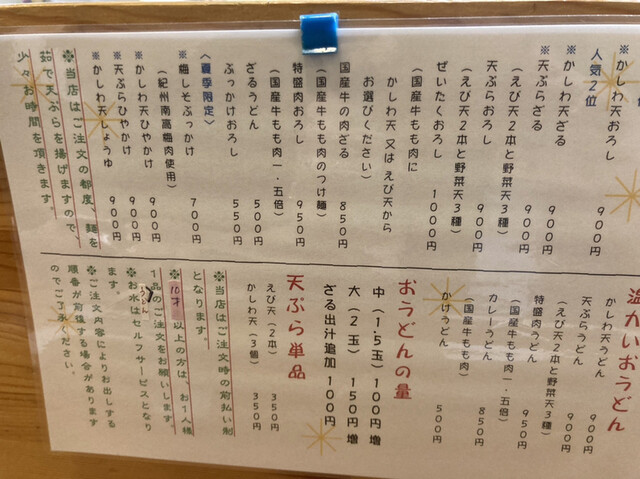 ※かしわ天おろし 900円
人気2位
※かしわ天ざる 900円
※天ぷらざる 900円
(えび天2本と野菜天3種)
天ぷらおろし 900円
(えび天2本と野菜天3種)
ぜいたくおろし 1000円
(国産牛もも肉に
かしわ天 又は えび天から
お選びください)
国産牛の肉ざる 850円
(国産牛もも肉のつけ麺)
特盛肉おろし 950円
(国産牛もも肉一・五倍)
ざるうどん 500円
ぶっかけおろし 550円
〈夏季限定〉
※梅しそぶっかけ 700円
(紀州南高梅肉使用)
※かしわ天ひやかけ 900円
※天ぷらひやかけ 900円
※かしわ天しょうゆ 900円
※当店はご注文の都度、麺を
茹で天ぷらを揚げますので、
少々お時間を頂きます。
温かいおうどん
かしわ天うどん 900円
天ぷらうどん 900円
(えび天2本と野菜天3種)
特盛肉うどん 950円
(国産牛もも肉一・五倍)
カレーうどん 850円
(国産牛もも肉)
かけうどん 500円
おうどんの量
中(1.5玉)100円増
大(2玉)150円増
ざる出汁追加 100円
天ぷら単品
えび天(2本) 350円
かしわ天(3個) 350円
※当店はご注文時の前払い制
となります。
※10才以上の方は、お1人様
1品のご注文をお願いします。
※お水はセルフサービスとなり
ます。
※ご注文内容によりお出しする
順番が前後する場合があります
のでご了承ください。